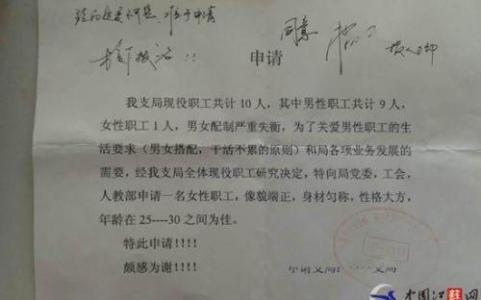 同意
申请
我支局现役职工共计 10 人，其中男性职工共计 9 人，
女性职工 1 人，男女配制严重失衡，为了关爱男性职工的生
活要求（男女搭配，干活不累的原则）和局各项业务发展的
需要，经我支局全体现役职工研究决定，特向局党委，工会，
人教部申请一名女性职工，像貌端正，身材匀称，性格大方，
年龄在 25----30 之间为佳。
特此申请！！！！
颇感为谢！！！！
申请支局：
支局
中国江苏网